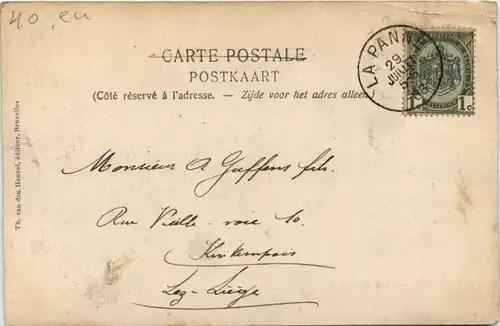 40,eu
CARTE POSTALE
POSTKAART
(Côté réservé à l'adresse. — Zijde voor het adres alleen)
LA PANNE
29
JUIN
1c 1c
Monsieur A Geffens fils.
Rue Vieille-voie 10.
Kinkempois
Lez-Liège
Th. van den Heuvel, éditeur, Bruxelles